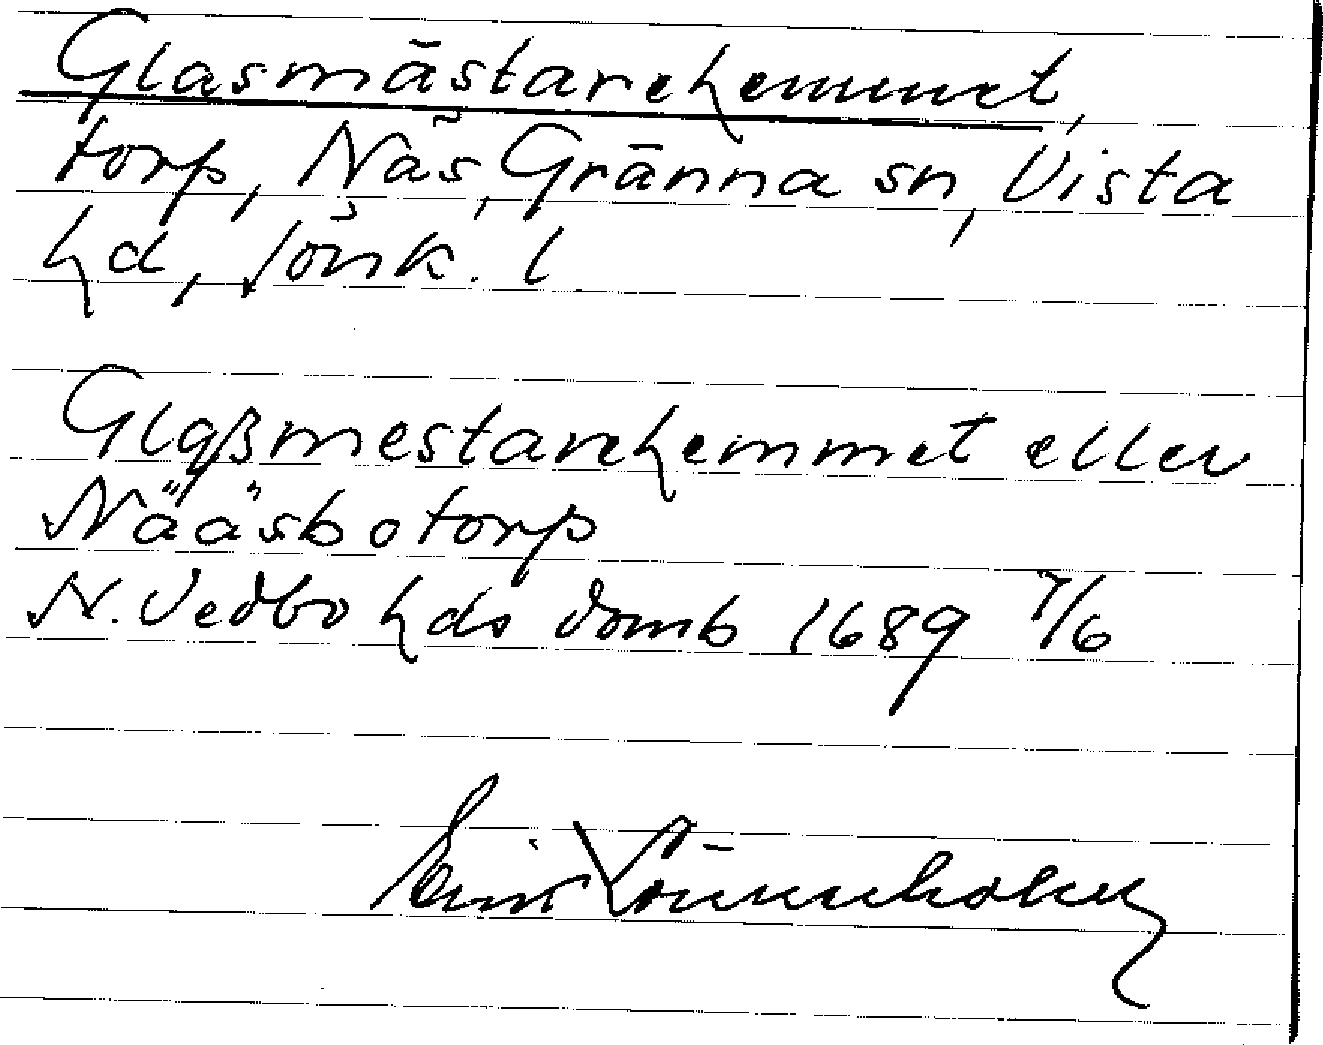 Glasmästarehemmet,
torp, Näs, Gränna sn, Vista
hd, Jönk. l
Glaßmestarehemmet eller
Nääsbotorp
N. Vedbo hds domb 1689 7/6